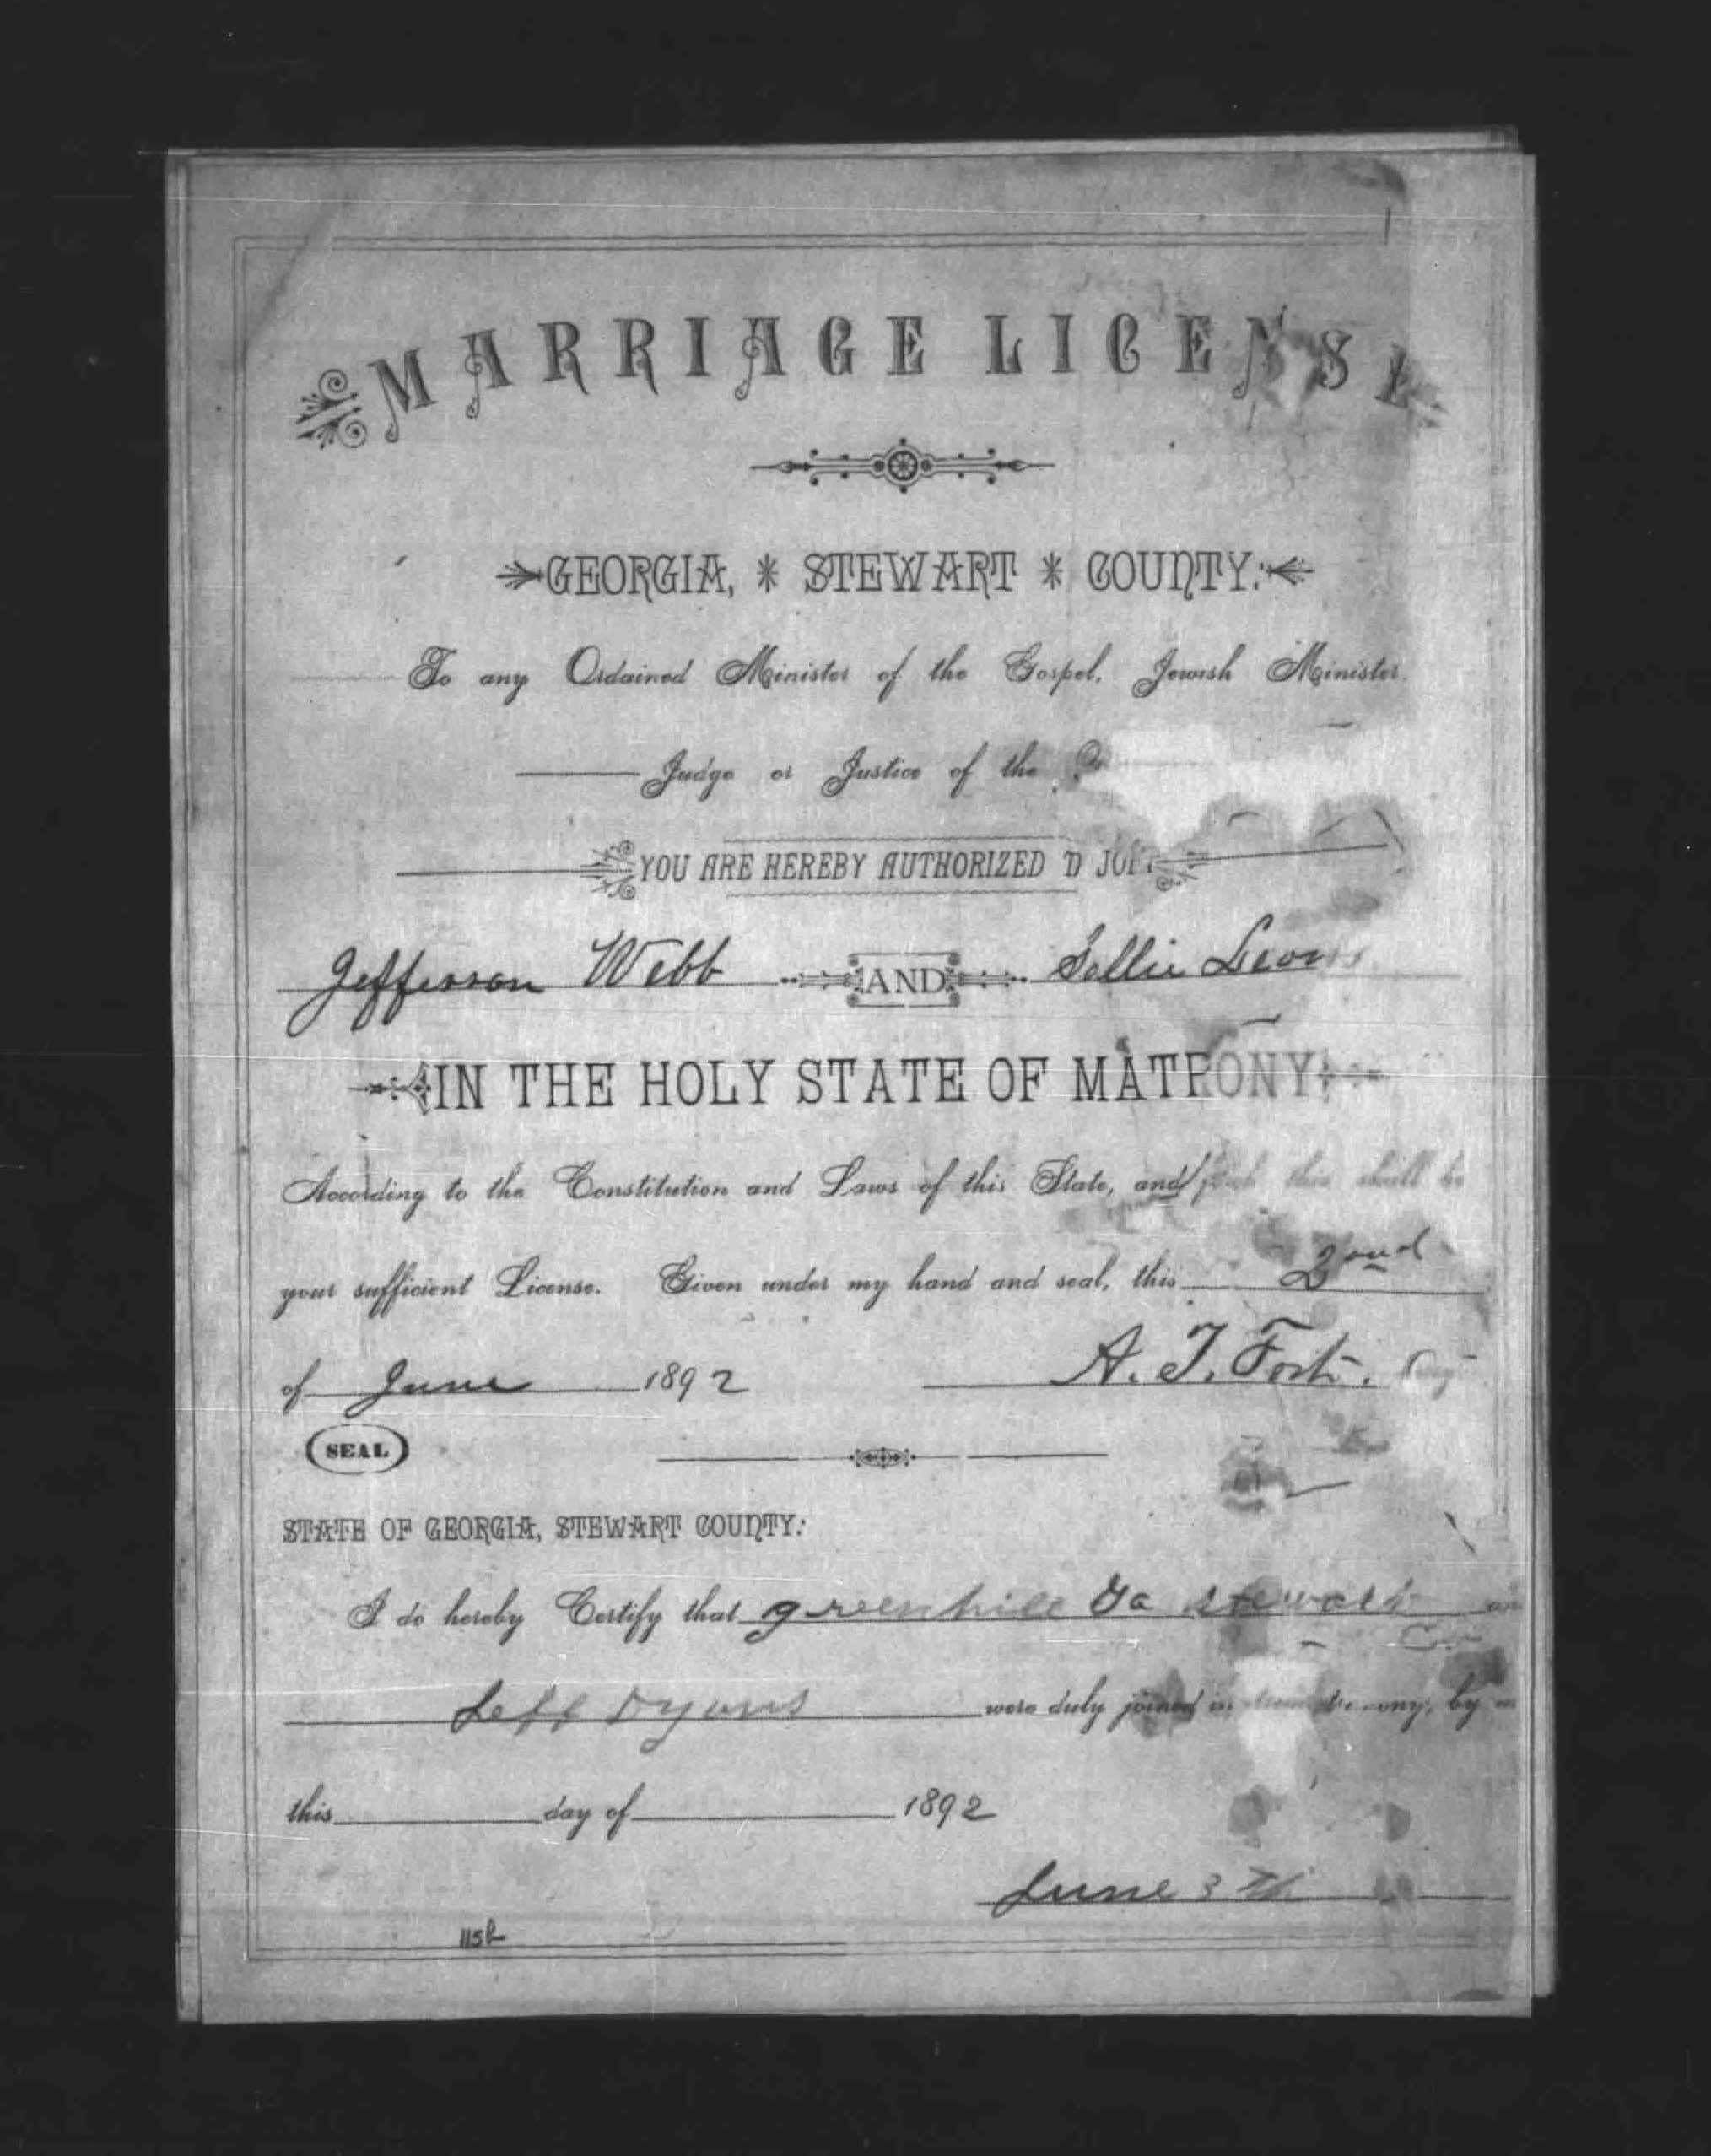 MARRIAGE LICENSE
GEORGIA, * STEWART * COUNTY:
To any Ordained Minister of the Gospel, Jewish Minister,
Judge or Justice of the
YOU ARE HEREBY AUTHORIZED
Jefferson Webb AND
IN THE HOLY STATE OF MATRONY
According to the Constitution and Laws of this State, and this shall be
your sufficient License. Given under my hand and seal, this 2nd
of June 1892 A. T. Fort.
SEAL
STATE OF GEORGIA, STEWART COUNTY:
I do hereby Certify that greenhill Ga stewart
were duly joined in by
this day of 1892
June 3